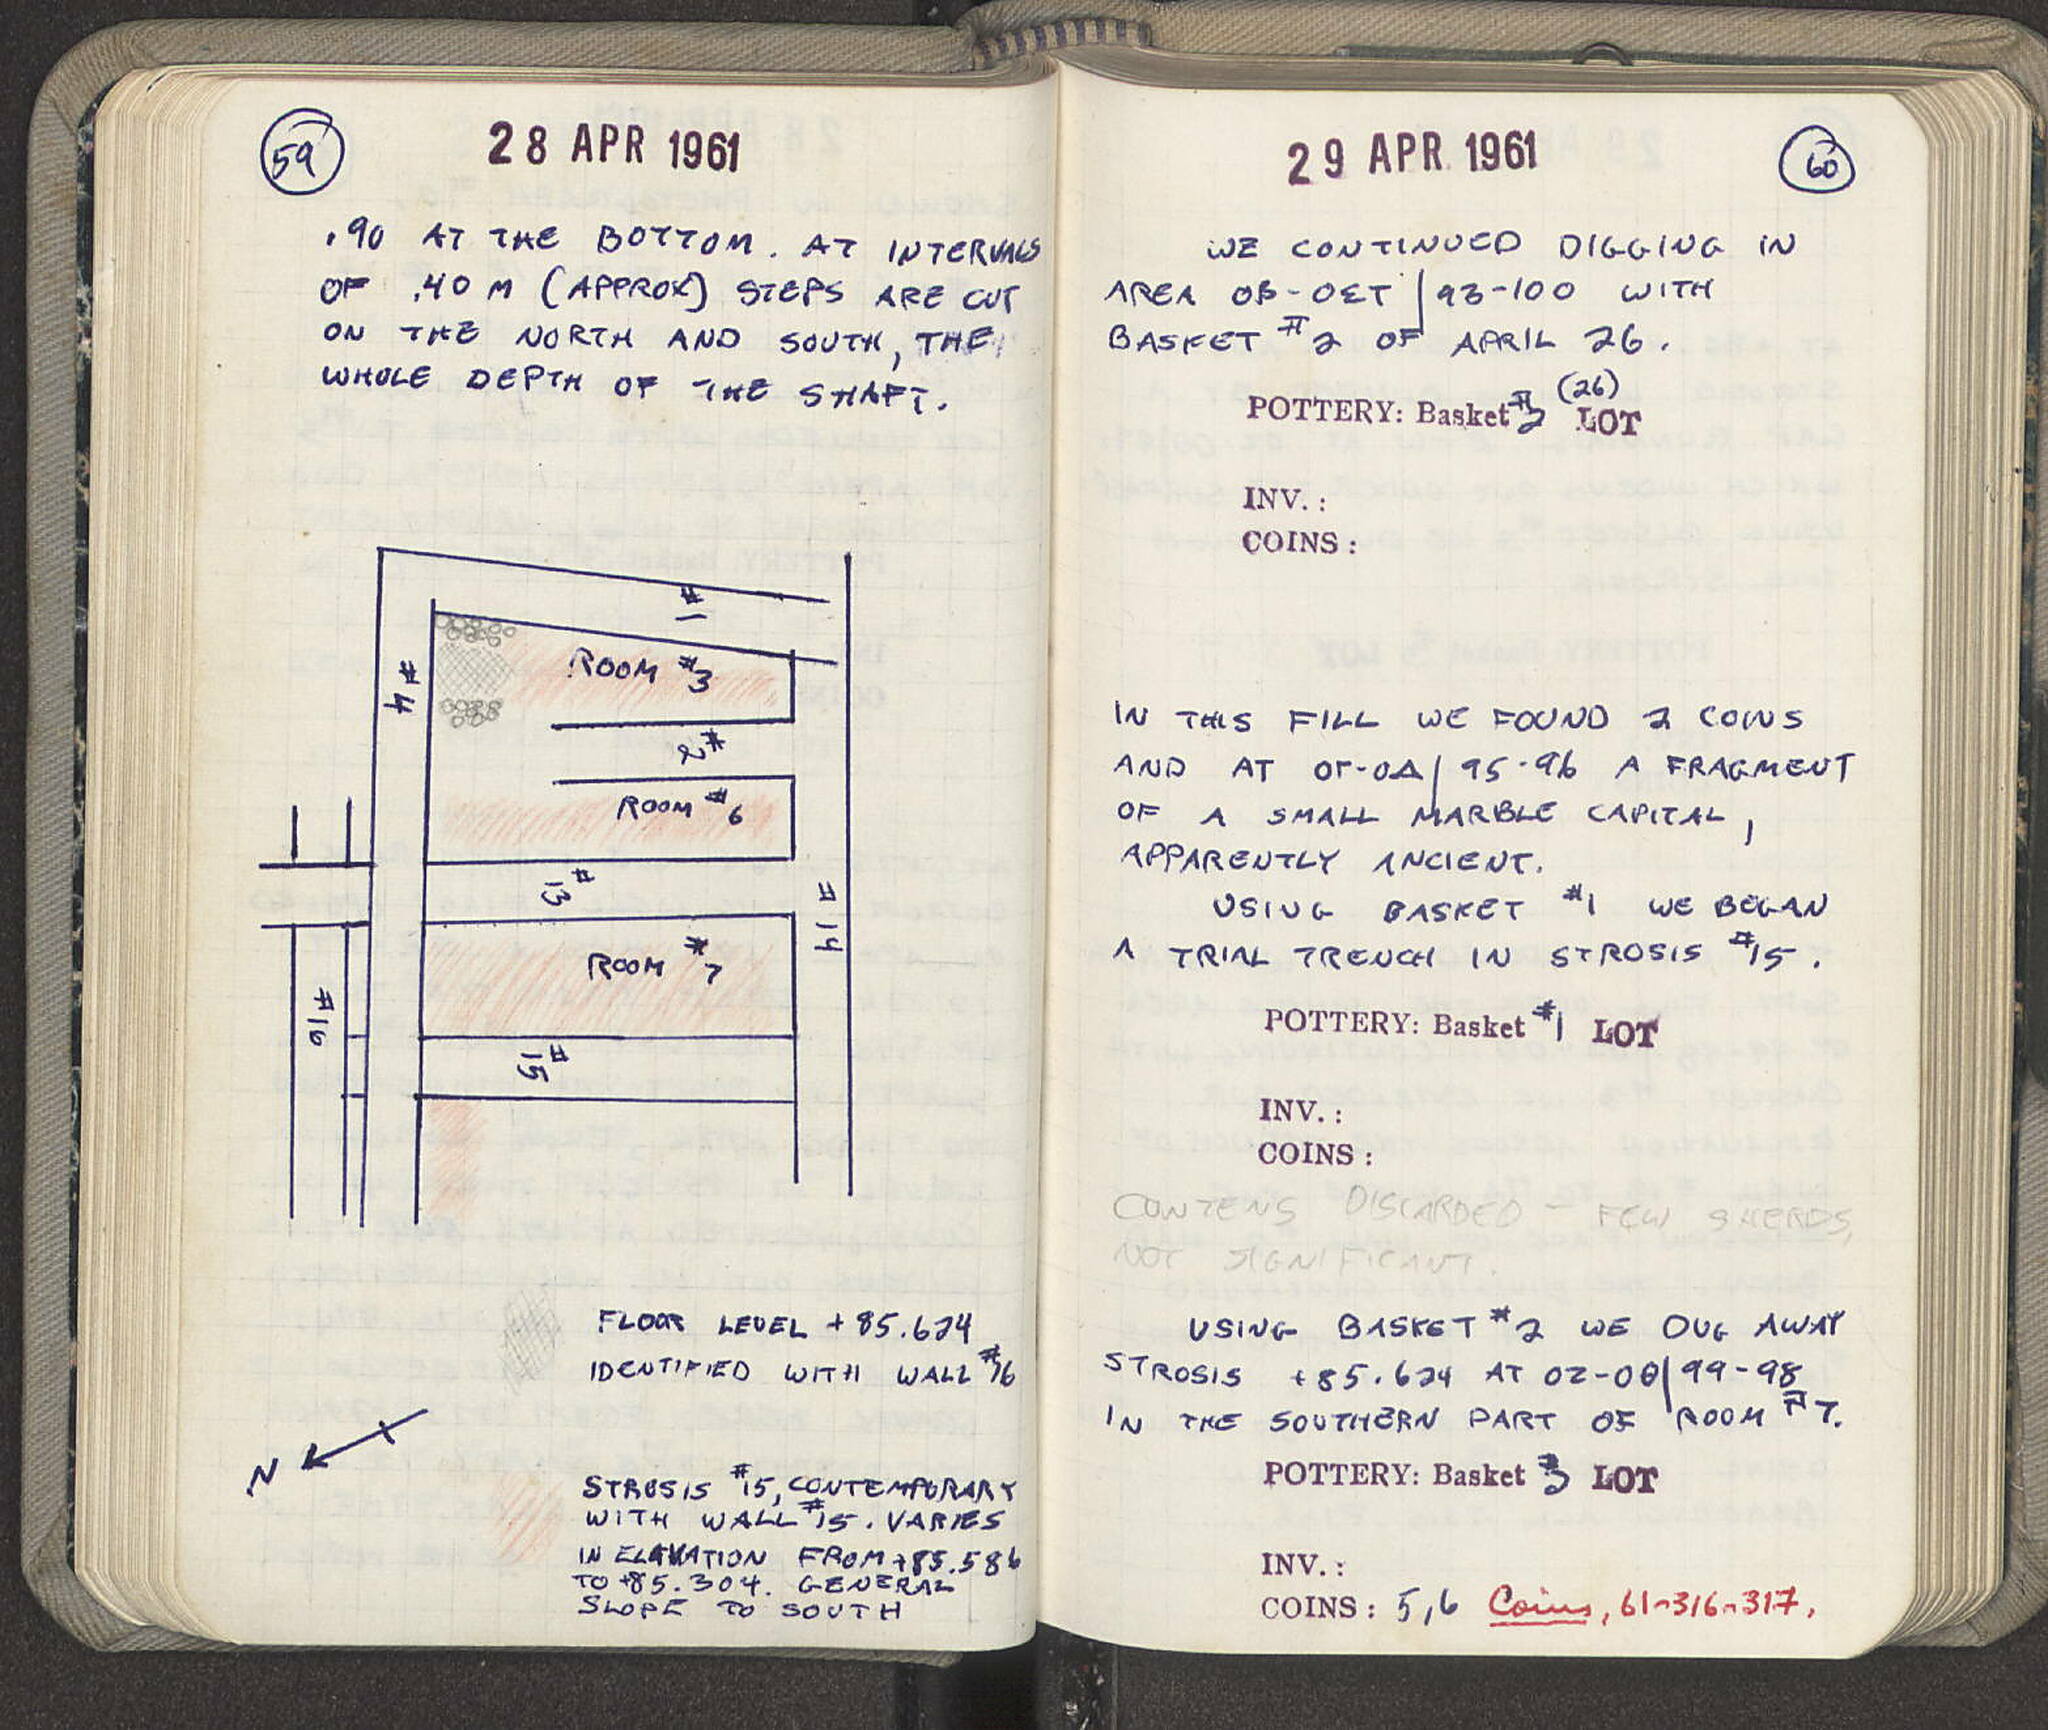 59
28 APR 1961
.90 AT THE BOTTOM. AT INTERVALS
OF .40 M (APPROX) STEPS ARE CUT
ON THE NORTH AND SOUTH, THE
WHOLE DEPTH OF THE SHAFT.
#1
ROOM #3
#4
#2
ROOM #6
#13
#14
ROOM #7
#16
#15
FLOOR LEVEL +85.624
IDENTIFIED WITH WALL #16
N
STROSIS #15, CONTEMPORARY
WITH WALL #15. VARIES
IN ELAVATION FROM +85.586
TO +85.304. GENERAL
SLOPE TO SOUTH
60
29 APR 1961
WE CONTINUED DIGGING IN
AREA | 93-100 WITH
BASKET #2 OF APRIL 26.
(26)
POTTERY: Basket #2 LOT
INV.:
COINS:
IN THIS FILL WE FOUND 2 COINS
AND AT OΓ-OΔ | 95-96 A FRAGMENT
OF A SMALL MARBLE CAPITAL,
APPARENTLY ANCIENT.
USING BASKET #1 WE BEGAN
A TRIAL TRENCH IN STROSIS #15.
POTTERY: Basket #1 LOT
INV.:
COINS:
CONTENS DISCARDED - FEW SHERDS,
NOT SIGNIFICANT.
USING BASKET #2 WE DUG AWAY
STROSIS +85.624 AT OZ-OΘ | 99-98
IN THE SOUTHERN PART OF ROOM #7.
POTTERY: Basket #3 LOT
INV.:
COINS: 5,6 Coins, 61-316-317.